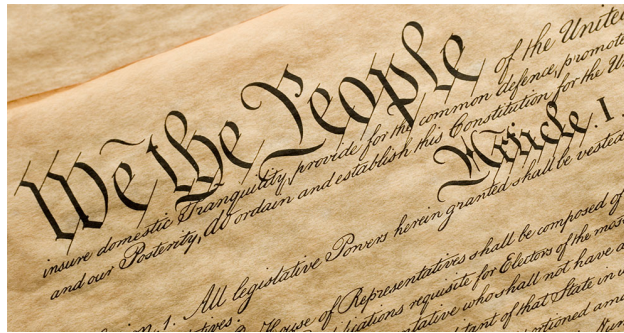 We the People of the United
insure domestic Tranquility, provide for the common defence, promote
and our Posterity, do ordain and establish this Constitution for the Un
Article. I.
n. 1. All legislative Powers herein granted shall be vested
House of Representatives shall be composed of
tives. requisite for Electors of the most
who shall not have a
of that State in w